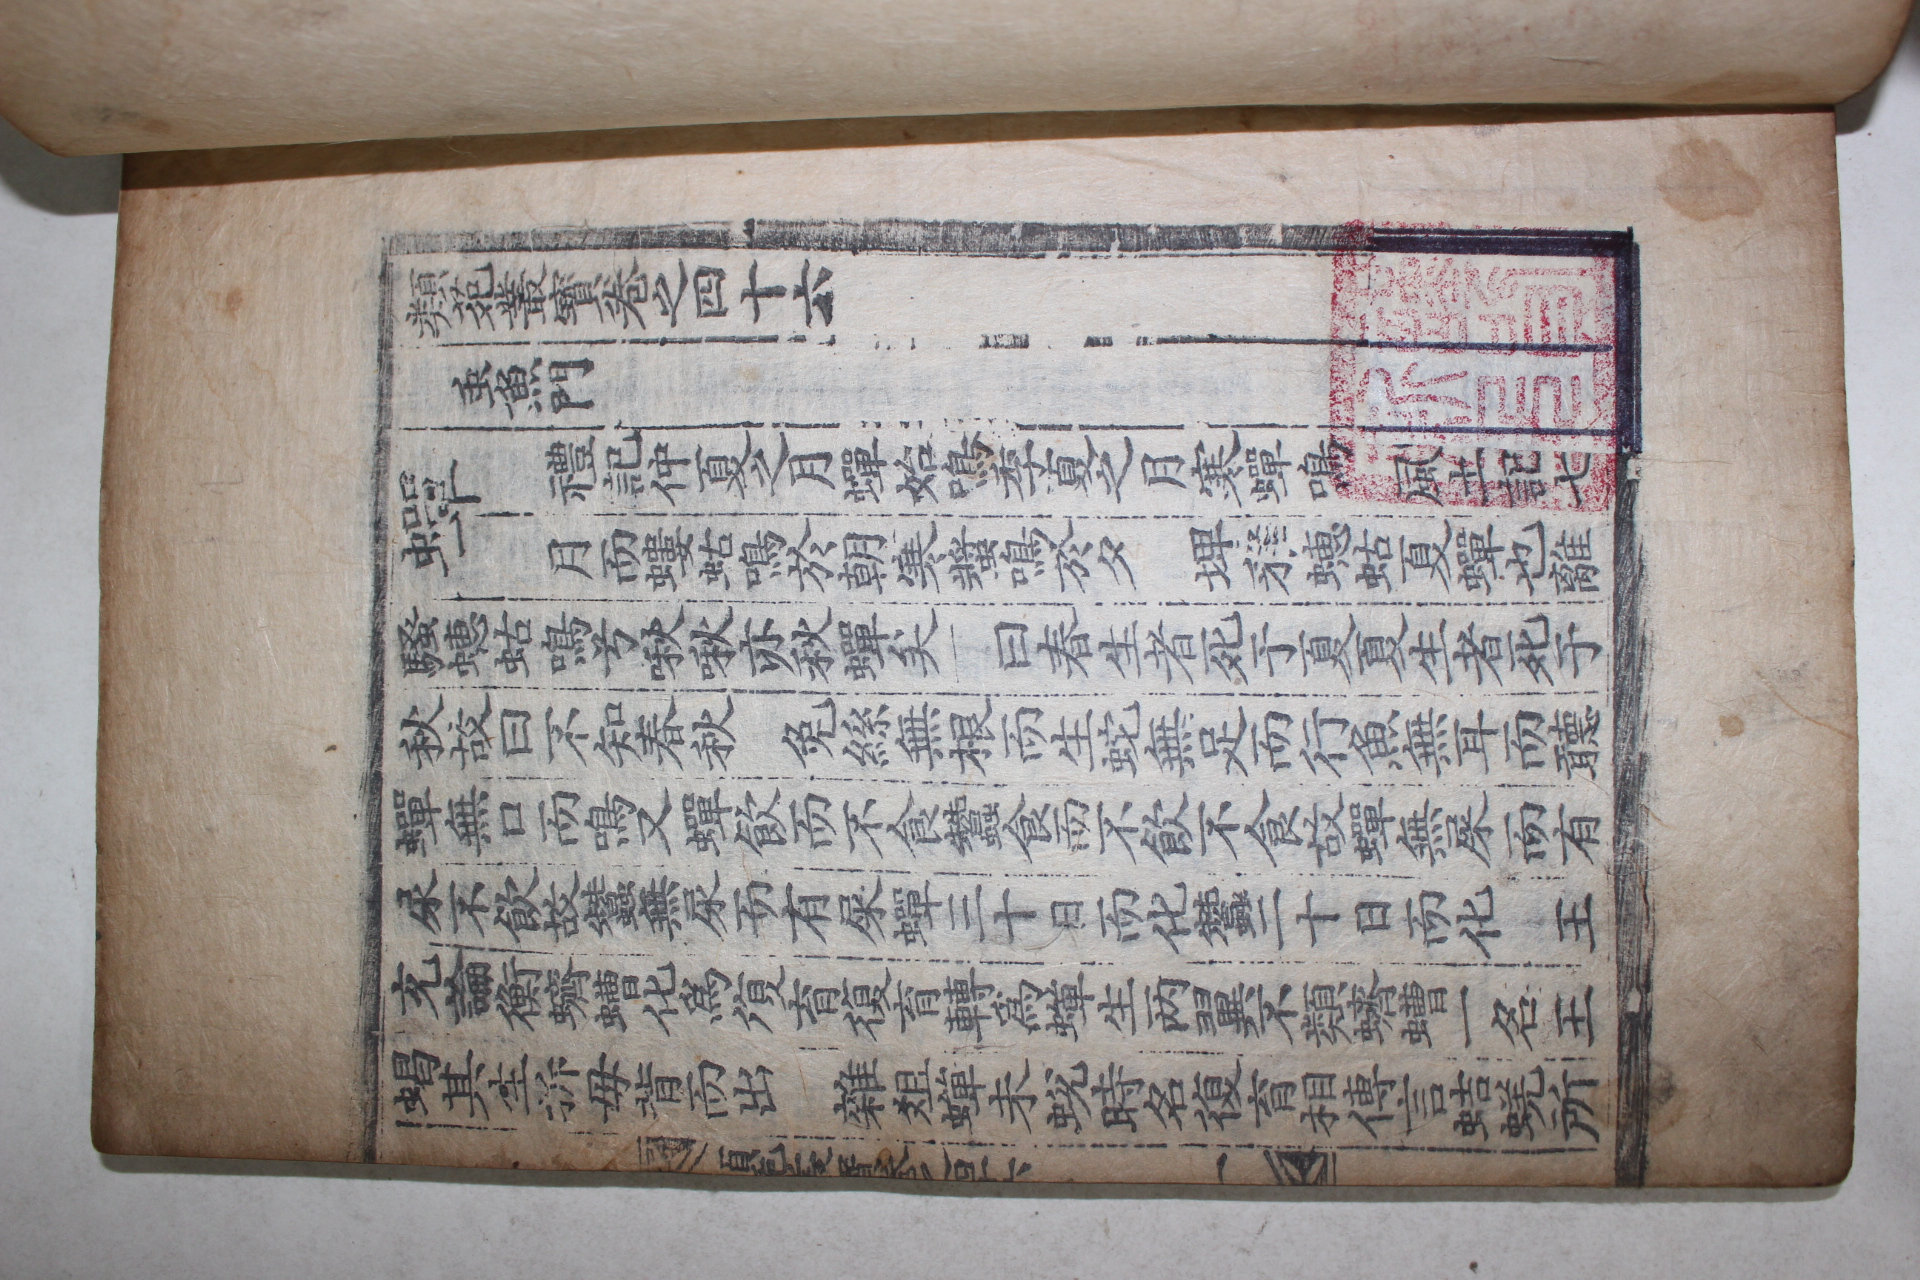 類苑叢寶卷之四十六
虫魚門
蟬一 禮記仲夏之月蟬始鳴季夏之月寒蟬鳴 風土記七
月而螻蛄鳴於朝寒螿鳴於夕 埤雅蟪蛄夏蟬也離
騷蟪蛄鳴兮啾啾亦秋蟬矣一曰春生者死于夏夏生者死于
秋故曰不知春秋 兔絲無根而生蛇無足而行魚無耳而聽
蟬無口而鳴又蟬飮而不食蠶食而不飮不食故蟬無屎而有
尿不飮故蠶無尿而有屎蟬三十日而化蠶二十日而化 王
充論衡蠐螬化爲復育復育轉爲蟬生兩翼不類蠐螬一名王
蝎其於毋背而出 雜俎蟬未蛻時名復育相傳言蛣蜣所